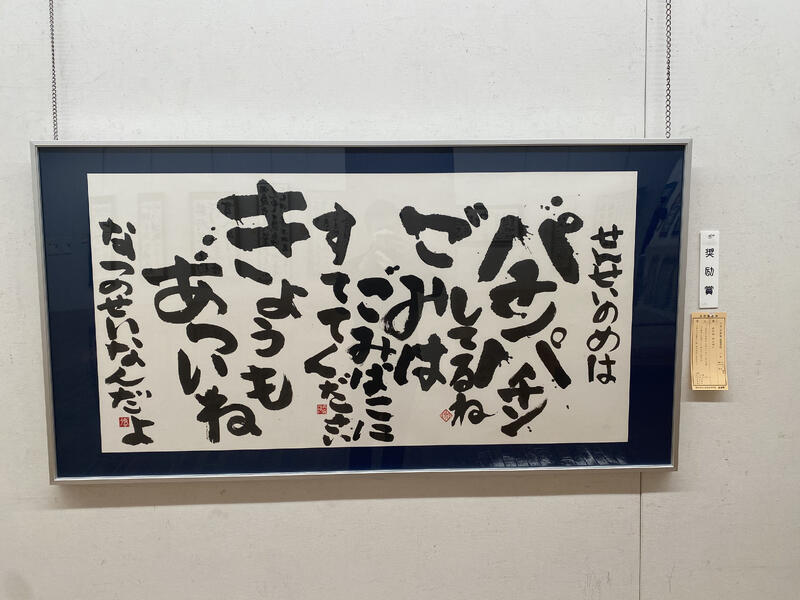 せんせいのめは
パチンパチン
してるね
ごみは
ごみばこに
すててください
きょうも
あついね
なつのせいなんだよ
奨励賞